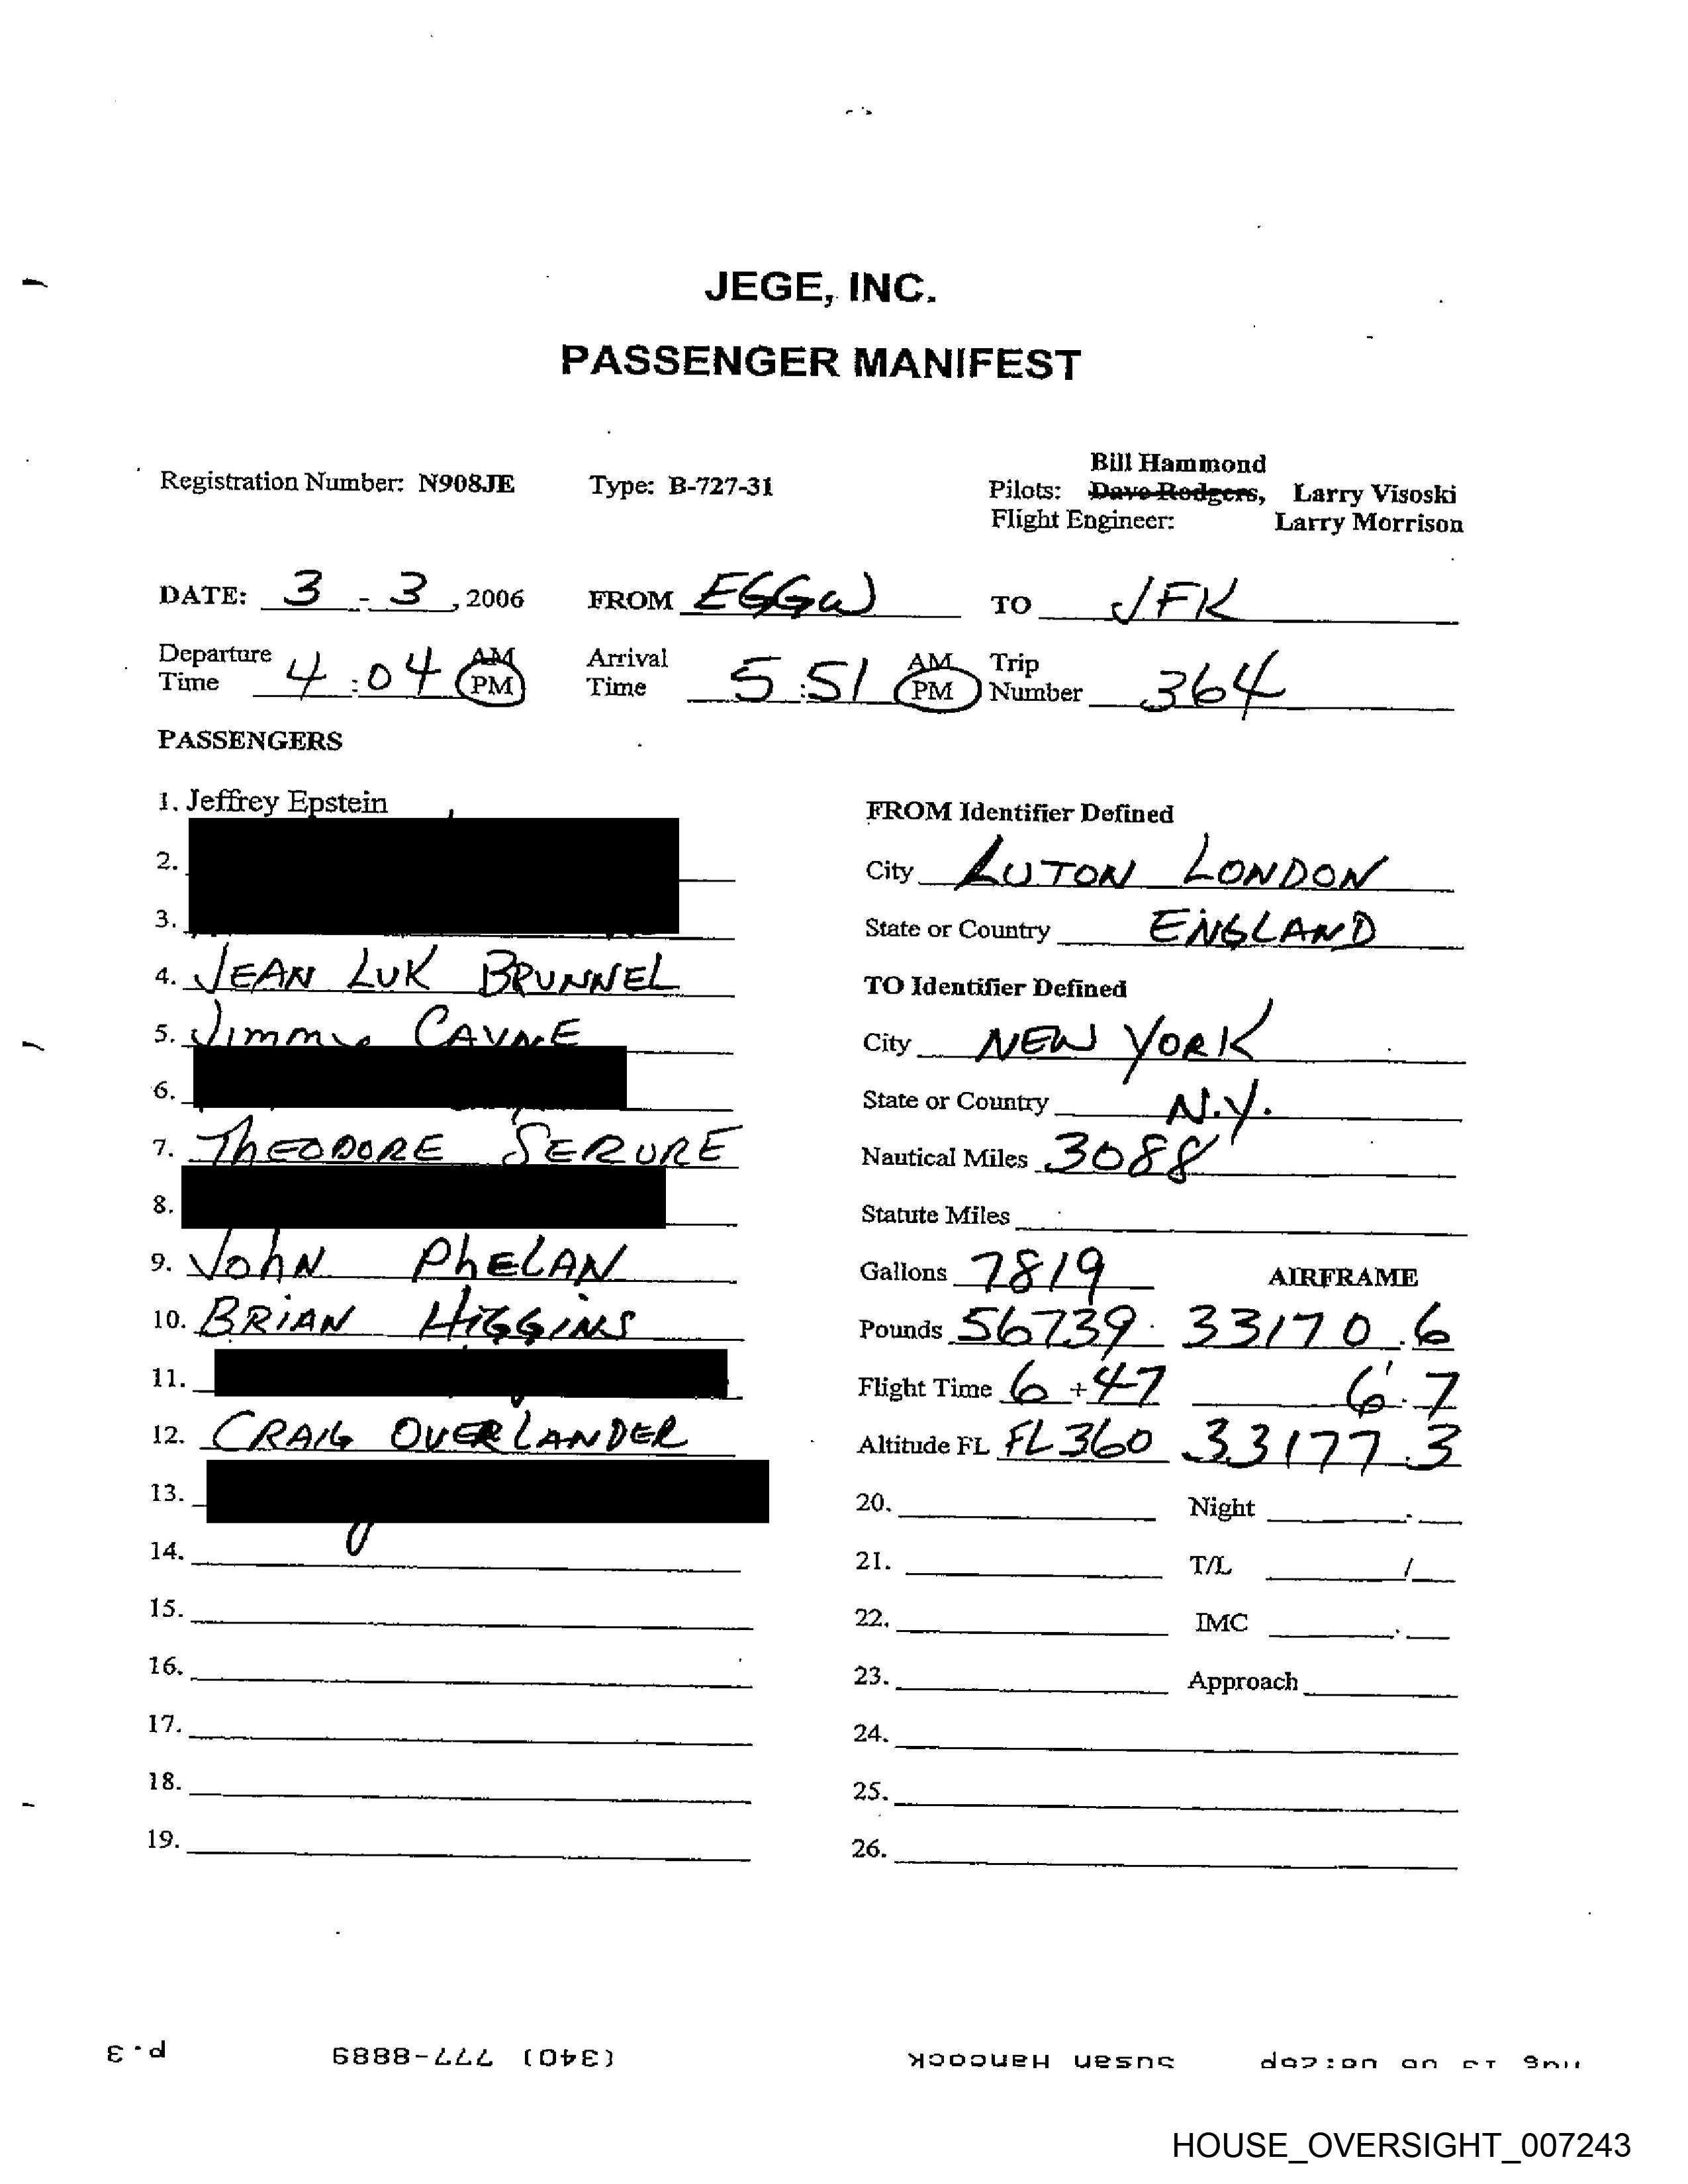 JEGE, INC.
PASSENGER MANIFEST
Bill Hammond
Registration Number: N908JE Type: B-727-31 Pilots: Dave Rodgers, Larry Visoski
Flight Engineer: Larry Morrison
DATE: 3 - 3, 2006 FROM EGGW TO JFK
Departure Time 4:04 AM PM Arrival Time 5:51 AM PM Trip Number 364
PASSENGERS
1. Jeffrey Epstein
2.
3.
4. JEAN LUK BRUNNEL
5. Jimmy CAYNE
6.
7. ThEODORE SERURE
8.
9. JohN PhELAN
10. BRiAN HiGGiNS
11.
12. CRAIG OVERLANDER
13.
14.
15.
16.
17.
18.
19.
FROM Identifier Defined
City LUTON LONDON
State or Country ENGLAND
TO Identifier Defined
City NEW YORK
State or Country N.Y.
Nautical Miles 3088
Statute Miles
Gallons 7819 AIRFRAME
Pounds 56739 33170.6
Flight Time 6+47 6.7
Altitude FL FL360 33177.3
20. Night
21. T/L /
22. IMC
23. Approach
24.
25.
26.
Susan Hancock (340) 777-8889 p.3
HOUSE_OVERSIGHT_007243